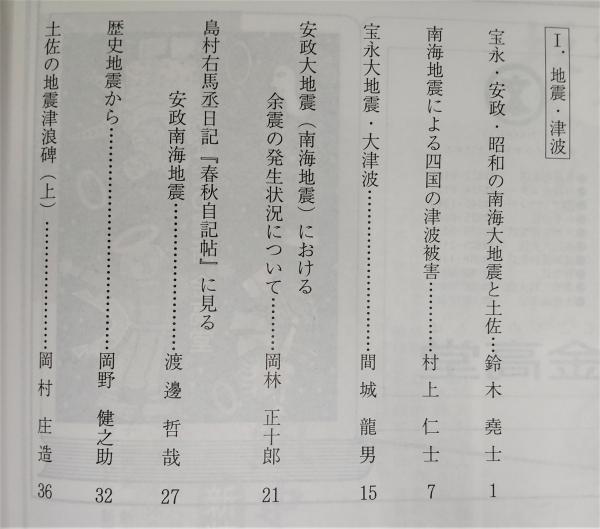 Ⅰ．地震・津波
宝永・安政・昭和の南海大地震と土佐…鈴木堯士 1
南海地震による四国の津波被害…………村上仁士 7
宝永大地震・大津波………………………間城龍男 15
安政大地震（南海地震）における
余震の発生状況について………岡林正十郎 21
島村右馬丞日記『春秋自記帖』に見る
安政南海地震………………………渡邊哲哉 27
歴史地震から………………………………岡野健之助 32
土佐の地震津浪碑（上）…………………岡村庄造 36
金高堂